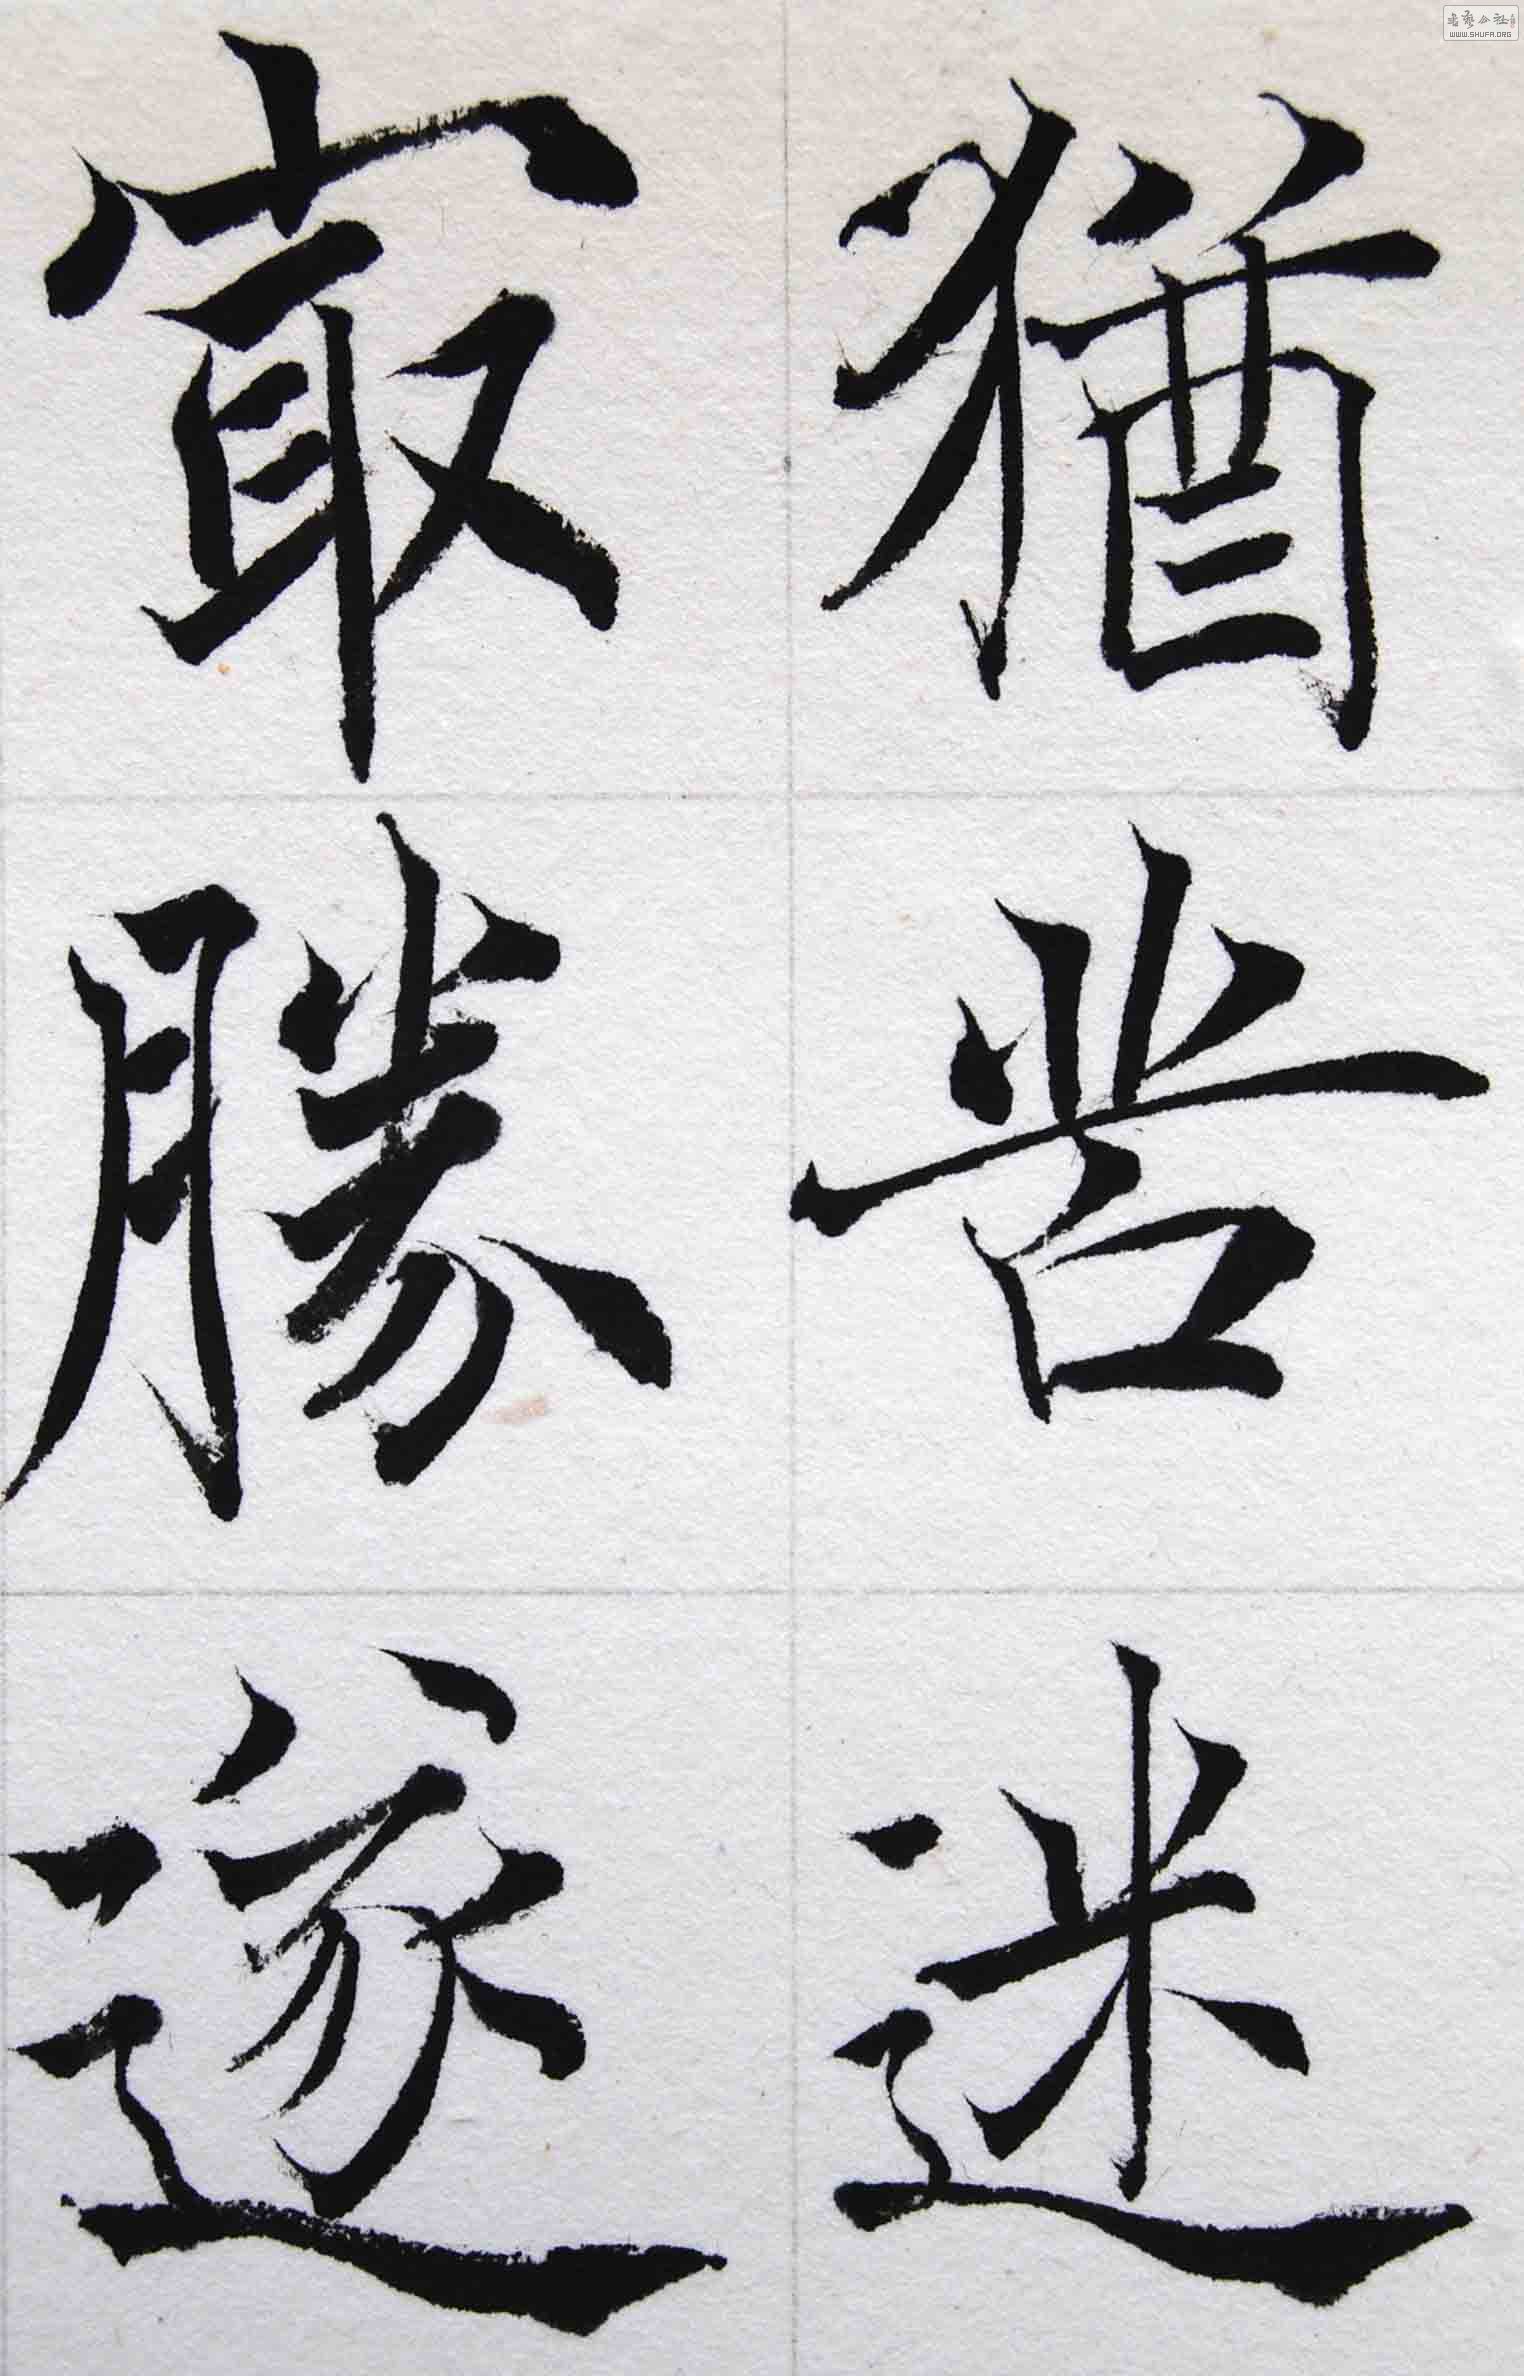 猶
迷
㝡勝遂
書藝公社
WWW.SHUFA.ORG